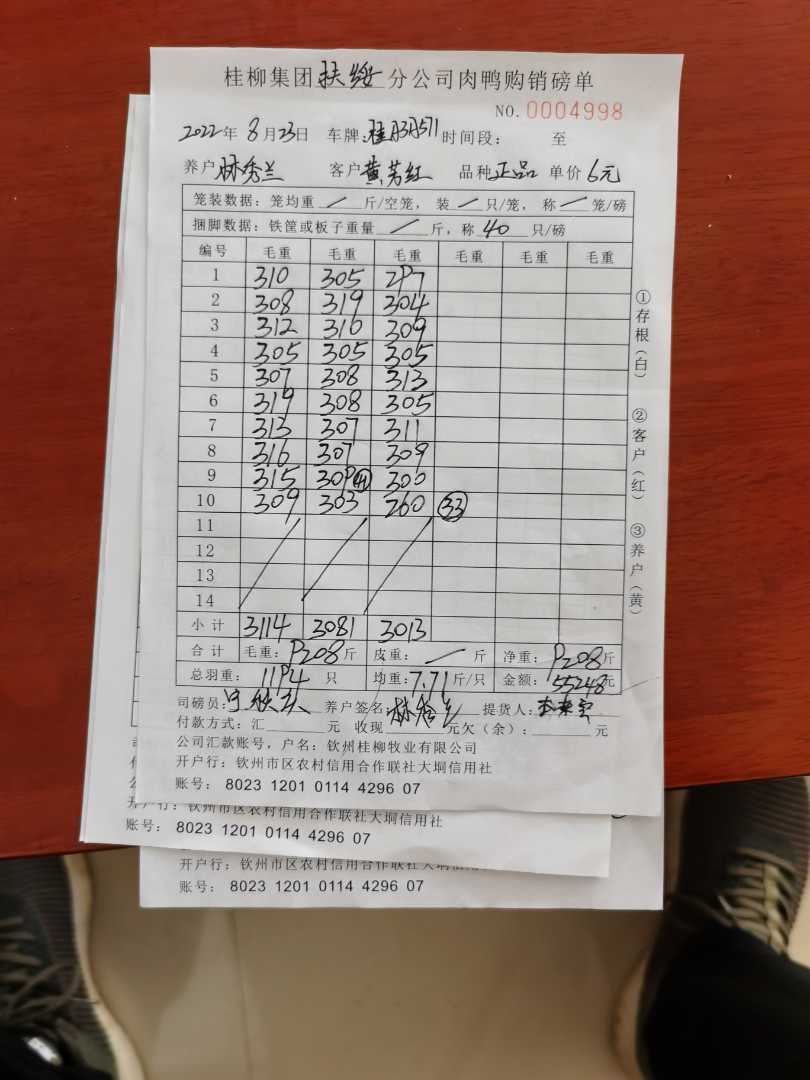 桂柳集团扶绥分公司肉鸭购销磅单
NO. 0004998
2022年 8月23日 车牌: 时间段: 至
养户 林秀兰 客户 黄芳红 品种 正品 单价 6元
笼装数据: 笼均重 / 斤/空笼, 装 / 只/笼, 称 / 笼/磅
捆脚数据: 铁筐或板子重量 / 斤, 称 40 只/磅
编号 毛重 毛重 毛重 毛重 毛重 毛重
1 310 305 297
2 308 319 304
3 312 310 309
4 305 305 305
5 307 308 313
6 319 308 305
7 313 307 311
8 316 307 309
9 315 309 41 300
10 309 303 260 33
11
12
13
14
小计 3114 3081 3013
合计 毛重: 9208斤 皮重: / 斤 净重: 9208斤
总羽重: 1194 只 均重: 7.71斤/只 金额: 55248元
司磅员: 养户签名: 林秀兰 提货人:
付款方式: 汇 元 收现 元欠(余): 元
公司汇款账号, 户名: 钦州桂柳牧业有限公司
开户行: 钦州市区农村信用合作联社大垌信用社
账号: 8023 1201 0114 4296 07
①存根(白) ②客户(红) ③养户(黄)
开户行: 钦州市区农村信用合作联社大垌信用社
账号: 8023 1201 0114 4296 07
开户行: 钦州市区农村信用合作联社大垌信用
账号: 8023 1201 0114 4296 07